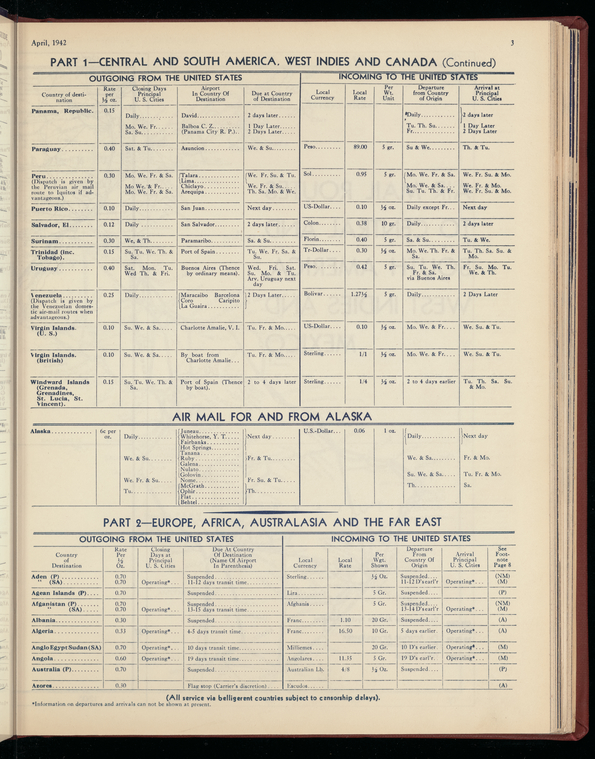 April, 1942
3
PART 1—CENTRAL AND SOUTH AMERICA, WEST INDIES AND CANADA (Continued)
OUTGOING FROM THE UNITED STATES
INCOMING TO THE UNITED STATES
Country of desti-nation | Rate per ½ oz. | Closing Days Principal U. S. Cities | Airport In Country Of Destination | Due at Country of Destination | Local Currency | Local Rate | Per Wt. Unit | Departure from Country of Origin | Arrival at Principal U. S. Cities
Panama, Republic. 0.15
Daily........ David........ 2 days later...... Daily........ 2 days later
Mo. We. Fr.... Balboa C. Z........ 1 Day Later...... Tu. Th. Su.... 1 Day Later
Sa. Su........ (Panama City R. P.).. 2 Days Later..... Fr........ 2 Days Later
Paraguay........ 0.40 Sat. & Tu..... Asuncion........ We. & Su........ Peso........ 89.00 5 gr. Su & We..... Th. & Tu.
Peru........ 0.30 Mo. We. Fr. & Sa. Talara........ We. Fr. Su. & Tu. Sol........ 0.95 5 gr. Mo. We. Fr. & Sa. We. Fr. Su. & Mo.
(Dispatch is given by Lima........
the Peruvian air mail Mo. We. & Fr. Chiclayo........ We. Fr. & Su. Mo. We. & Sa. We. Fr. & Mo.
route to Iquitos if ad- Mo. We. Fr. & Sa. Arequipa........ Th. Sa. Mo. & We. Su. Tu. Th. & Fr. We. Fr. Su. & Mo.
vantageous.)
Puerto Rico........ 0.10 Daily........ San Juan........ Next day........ US-Dollar... 0.10 ½ oz. Daily except Fr... Next day
Salvador, El........ 0.12 Daily........ San Salvador........ 2 days later...... Colon........ 0.38 10 gr. Daily........ 2 days later
Surinam........ 0.30 We, & Th..... Paramaribo........ Sa. & Su........ Florin........ 0.40 5 gr. Sa. & Su..... Tu. & We.
Trinidad (inc. 0.15 Su. Tu. We. Th. & Port of Spain........ Tu. We. Fr. Sa. & Tr-Dollar... 0.30 ½ oz. Mo. We. Th. Fr. & Tu. Th. Sa. Su. &
Tobago). Sa. Su. Sa. Mo.
Uruguay........ 0.40 Sat. Mon. Tu. Buenos Aires (Thence Wed. Fri. Sat. Peso........ 0.42 5 gr. Su. Tu. We. Th. Fr. Su. Mo. Tu.
Wed Th. & Fri. by ordinary means). Su. Mo. & Tu. Fr. & Sa. We. & Th.
Arv. Uruguay next via Buenos Aires
day
Venezuela........ 0.25 Daily........ Maracaibo Barcelona 2 Days Later.... Bolivar...... 1.27½ 5 gr. Daily........ 2 Days Later
(Dispatch is given by Coro Caripito
the Venezuelan domes- La Guaira........
tic air-mail routes when
advantageous.)
Virgin Islands. 0.10 Su. We. & Sa.... Charlotte Amalie, V. I. Tu. Fr. & Mo..... US-Dollar... 0.10 ½ oz. Mo. We. & Fr.... We. Su. & Tu.
(U. S.)
Virgin Islands. 0.10 Su. We. & Sa.... By boat from Tu. Fr. & Mo..... Sterling...... 1/1 ½ oz. Mo. We. & Fr.... We. Su. & Tu.
(British) Charlotte Amalie...
Windward Islands 0.15 Su. Tu. We. Th. & Port of Spain (Thence 2 to 4 days later Sterling...... 1/4 ½ oz. 2 to 4 days earlier Tu. Th. Sa. Su.
(Grenada, Sa. by boat). & Mo.
Grenadines,
St. Lucia, St.
Vincent).
AIR MAIL FOR AND FROM ALASKA
Alaska............ 6c per Juneau........ U.S.-Dollar... 0.06 1 oz.
oz. Daily........ Whitehorse, Y. T... Next day........ Daily........ Next day
Fairbanks........
Hot Springs........
Tanana........
We. & Su.... Ruby........ Fr. & Tu........ We. & Sa..... Fr. & Mo.
Galena........
Nulato........
Golovin........ Su. We. & Sa.... Tu. Fr. & Mo.
We. Fr. & Su... Nome........ Fr. Su. & Tu.....
McGrath........ Th........ Sa.
Tu........ Ophir........ Th........
Flat........
Bethel........
PART 2—EUROPE, AFRICA, AUSTRALASIA AND THE FAR EAST
OUTGOING FROM THE UNITED STATES
INCOMING TO THE UNITED STATES
Country of Destination | Rate Per ½ Oz. | Closing Days at Principal U. S. Cities | Due At Country Of Destination (Name Of Airport In Parenthesis) | Local Currency | Local Rate | Per Wgt. Shown | Departure From Country Of Origin | Arrival Principal U. S. Cities | See Foot-note Page 8
Aden (P)........ 0.70 Suspended........ Sterling........ ½ Oz. Suspended.... (NM)
" (SA)........ 0.70 Operating*... 11-12 days transit time........ 11-12 D'searl'r Operating*... (M)
Agean Islands (P).... 0.70 Suspended........ Lira........ 5 Gr. Suspended.... (P)
Afganistan (P)...... 0.70 Suspended........ Afghania...... 5 Gr. Suspended.... (NM)
" (SA)..... 0.70 Operating*... 13-15 days transit time........ 13-14 D'searl'r Operating*... (M)
Albania........ 0.30 Suspended........ Franc........ 1.10 20 Gr. Suspended.... (A)
Algeria........ 0.33 Operating*... 4-5 days transit time........ Franc........ 16.50 10 Gr. 5 days earlier. Operating*... (A)
Anglo Egypt Sudan (SA) 0.70 Operating*... 10 days transit time........ Milliemes.... 20 Gr. 10 D's earlier. Operating*... (M)
Angola........ 0.60 Operating*... 19 days transit time........ Angolares.... 11.35 5 Gr. 19 D's earl'r. Operating*... (M)
Australia (P)........ 0.70 Suspended........ Australian Lb. 4/9 ½ Oz. Suspended.... (P)
Azores........ 0.30 Flag stop (Carrier's discretion)... Escudos...... (A)
(All service via belligerent countries subject to censorship delays).
*Information on departures and arrivals can not be shown at present.